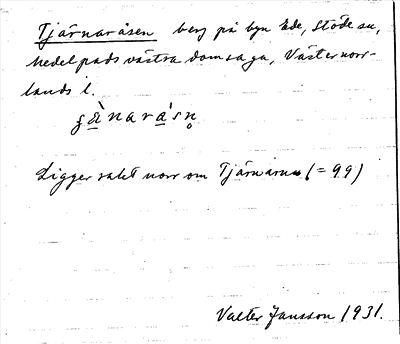 Tjärnaråsen berg på byn Ede, Stöde sn,
Medelpads västra domsaga, Västernorr-
lands l.
Ligger rakt norr om Tjärnarna (= 99)
Valter Jansson 1931.